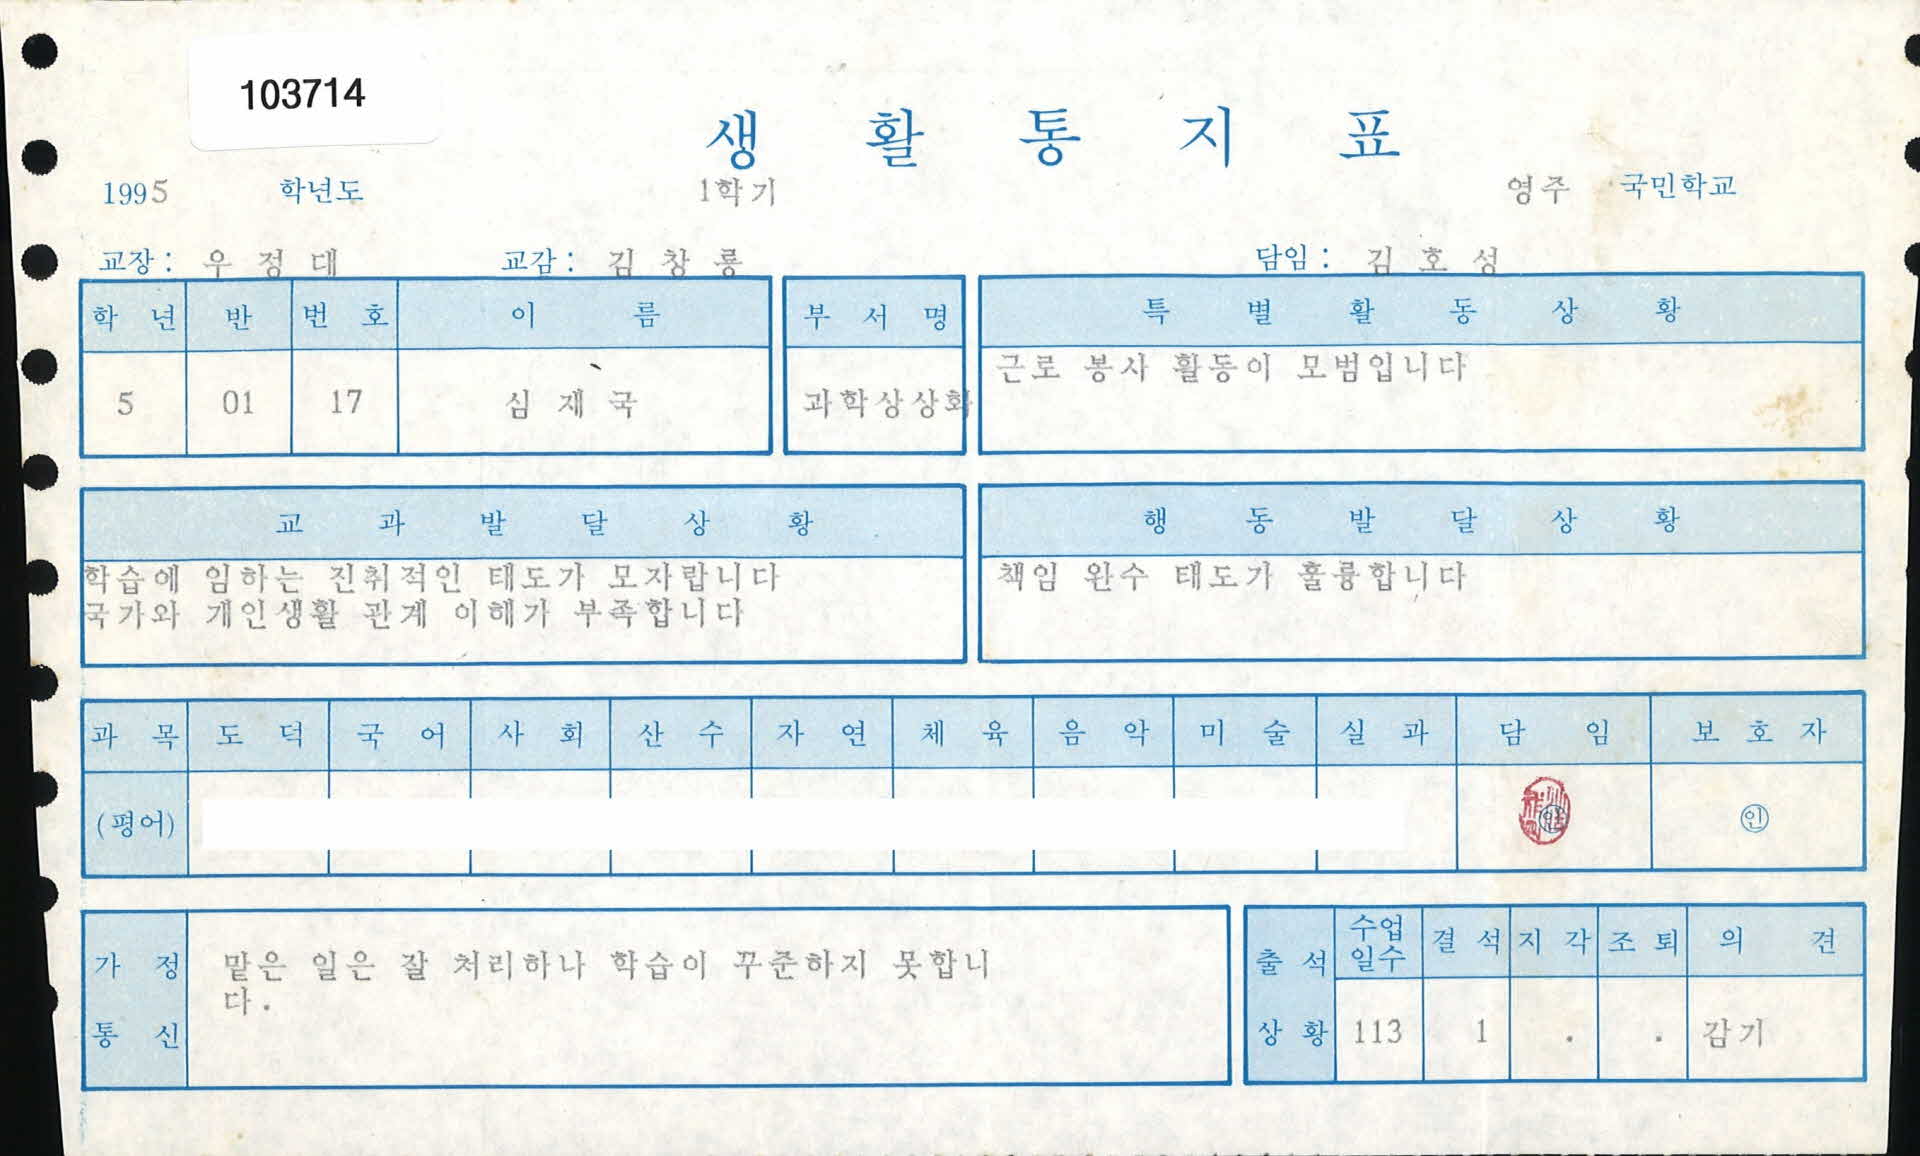 103714
생 활 통 지 표
1995 학년도 1학기 영주 국민학교
교장 : 우 정 대 교감 : 김 창 룡 담임 : 김 호 성
학 년 반 번 호 이 름 부 서 명 특 별 활 동 상 황
근로 봉사 활동이 모범입니다
5 01 17 심 재 국 과학상상화
교 과 발 달 상 황 행 동 발 달 상 황
학습에 임하는 진취적인 태도가 모자랍니다 책임 완수 태도가 훌륭합니다
국가와 개인생활 관계 이해가 부족합니다
과 목 도 덕 국 어 사 회 산 수 자 연 체 육 음 악 미 술 실 과 담 임 보 호 자
(평어) 인 인
가 정 맡은 일은 잘 처리하나 학습이 꾸준하지 못합니
다.
통 신
출 석 수업 일수 결 석 지 각 조 퇴 의 견
상 황 113 1 . . 감기